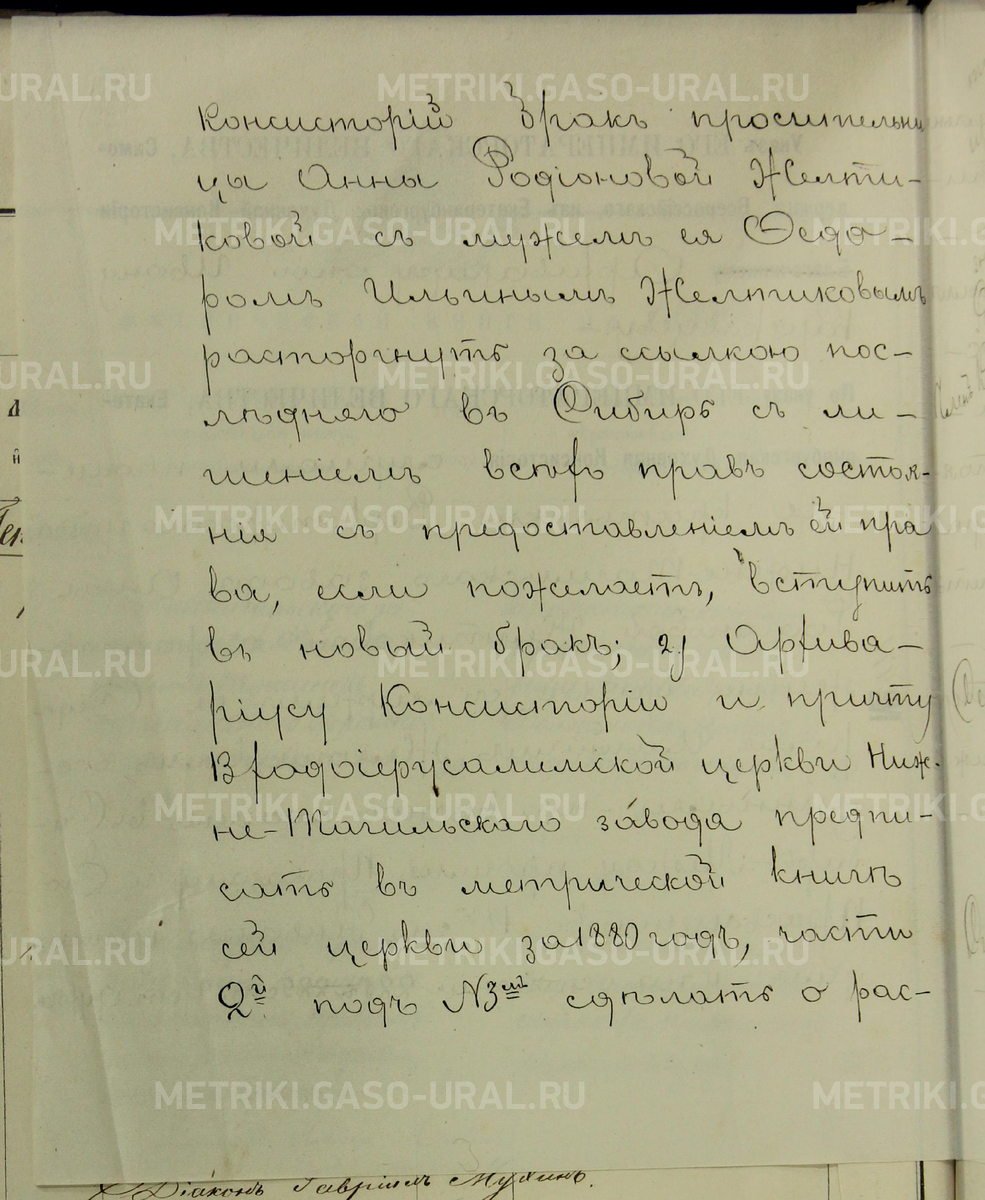 Консисторіи бракъ просительни
цы Анны Родіоновой Желти-
ковой съ мужемъ ея Ѳедо-
ромъ Ильинымъ Желтиковымъ
расторгнуть за ссылкою пос-
лѣдняго въ Сибирь съ ли-
шеніемъ всѣхъ правъ состоя-
нія съ предоставленіемъ ей пра
ва, если пожелаетъ, вступить
въ новый бракъ; 2) Архива-
ріусу Консисторіи и причту
Входоіерусалимской церкви Ниж-
не-Тагильскаго завода предпи-
сать въ метрической книгѣ
сей церкви за 1880 годъ, части
2й подъ №3мъ сдѣлать о рас-
Діаконъ Гавріилъ Мухинъ.
METRIKI.GASO-URAL.RU